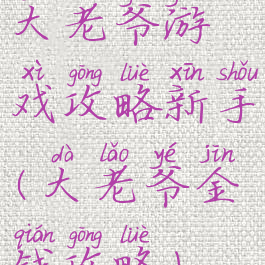 大老爷游
xì gōng lüè xīn shǒu
戏攻略新手
dà lǎo yé jīn
(大老爷金
qián gōng lüè
钱攻略)